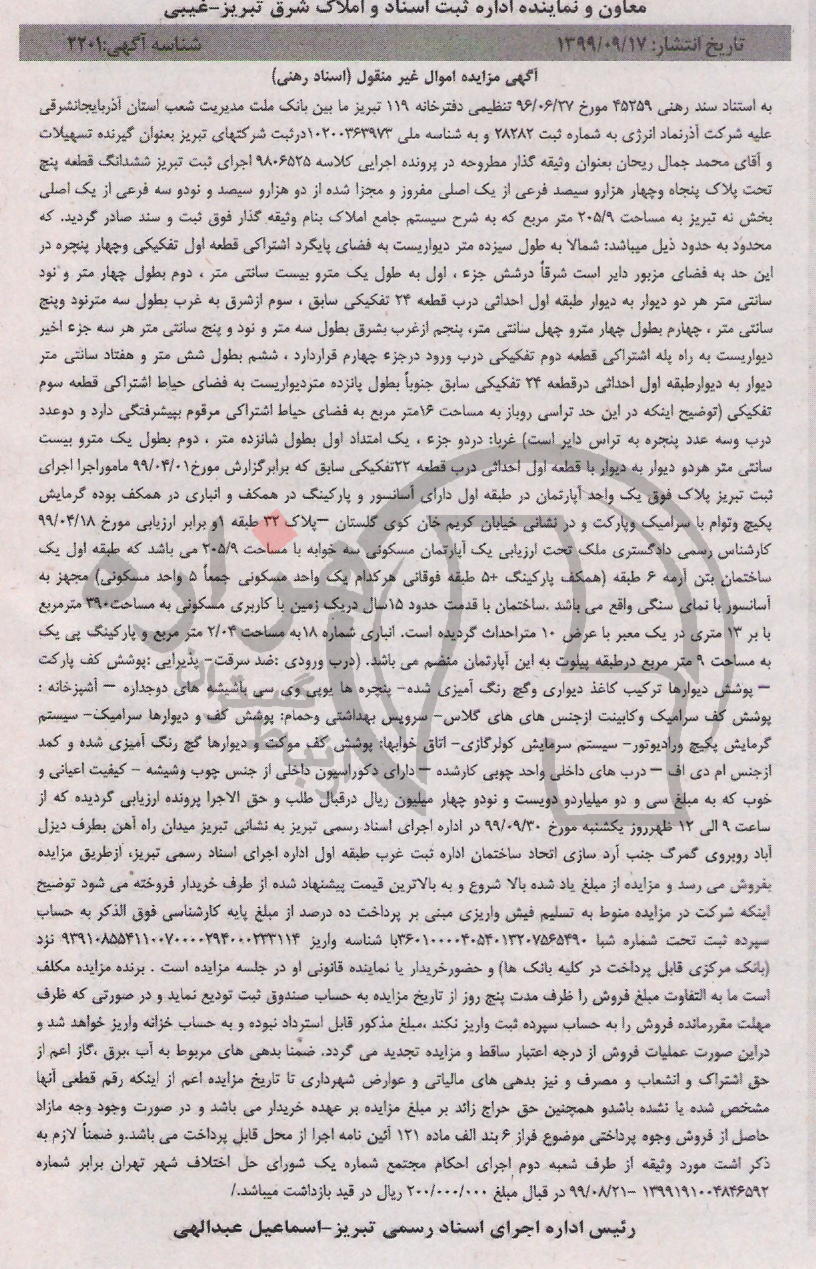 معاون و نماینده اداره ثبت اسناد و املاک شرق تبریز-غیبی
تاریخ انتشار: ۱۳۹۹/۰۹/۱۷ شناسه آگهی:۲۲۰۱
آگهی مزایده اموال غیر منقول (اسناد رهنی)
به استناد سند رهنی ۴۵۲۵۹ مورخ ۹۶/۰۶/۲۷ تنظیمی دفترخانه ۱۱۹ تبریز ما بین بانک ملت مدیریت شعب استان آذربایجانشرقی
علیه شرکت آذرنماد انرژی به شماره ثبت ۲۸۲۸۲ و به شناسه ملی ۱۰۲۰۰۳۶۳۹۷۳درثبت شرکتهای تبریز بعنوان گیرنده تسهیلات
و آقای محمد جمال ریحان بعنوان وثیقه گذار مطروحه در پرونده اجرایی کلاسه ۹۸۰۶۵۲۵ اجرای ثبت تبریز ششدانگ قطعه پنج
تحت پلاک پنجاه وچهار هزارو سیصد فرعی از یک اصلی مفروز و مجزا شده از دو هزارو سیصد و نودو سه فرعی از یک اصلی
بخش نه تبریز به مساحت ۲۰۵/۹ متر مربع که به شرح سیستم جامع املاک بنام وثیقه گذار فوق ثبت و سند صادر گردید. که
محدود به حدود ذیل میباشد: شمالا به طول سیزده متر دیواریست به فضای پایگرد اشتراکی قطعه اول تفکیکی وچهار پنجره در
این حد به فضای مزبور دایر است شرقاً درشش جزء ، اول به طول یک مترو بیست سانتی متر ، دوم بطول چهار متر و نود
سانتی متر هر دو دیوار به دیوار طبقه اول احداثی درب قطعه ۲۴ تفکیکی سابق ، سوم ازشرق به غرب بطول سه مترنود وپنج
سانتی متر ، چهارم بطول چهار مترو چهل سانتی متر، پنجم ازغرب بشرق بطول سه متر و نود و پنج سانتی متر هر سه جزء اخیر
دیواریست به راه پله اشتراکی قطعه دوم تفکیکی درب ورود درجزء چهارم قراردارد ، ششم بطول شش متر و هفتاد سانتی متر
دیوار به دیوارطبقه اول احداثی درقطعه ۲۴ تفکیکی سابق جنوباً بطول پانزده متردیواریست به فضای حیاط اشتراکی قطعه سوم
تفکیکی (توضیح اینکه در این حد تراسی روباز به مساحت ۱۶متر مربع به فضای حیاط اشتراکی مرقوم بپیشرفتگی دارد و دوعدد
درب وسه عدد پنجره به تراس دایر است) غربا: دردو جزء ، یک امتداد اول بطول شانزده متر ، دوم بطول یک مترو بیست
سانتی متر هردو دیوار به دیوار با قطعه اول احداثی درب قطعه ۲۲تفکیکی سابق که برابرگزارش مورخ۹۹/۰۴/۰۱ ماموراجرا اجرای
ثبت تبریز پلاک فوق یک واحد آپارتمان در طبقه اول دارای آسانسور و پارکینگ در همکف و انباری در همکف بوده گرمایش
پکیج وتوام با سرامیک وپارکت و در نشانی خیابان کریم خان کوی گلستان –پلاک ۳۲ طبقه ۱و برابر ارزیابی مورخ ۹۹/۰۴/۱۸
کارشناس رسمی دادگستری ملک تحت ارزیابی یک آپارتمان مسکونی سه خوابه با مساحت ۲۰۵/۹ می باشد که طبقه اول یک
ساختمان بتن آرمه ۶ طبقه (همکف پارکینگ +۵ طبقه فوقانی هرکدام یک واحد مسکونی جمعاً ۵ واحد مسکونی) مجهز به
آسانسور با نمای سنگی واقع می باشد .ساختمان با قدمت حدود ۱۵سال دریک زمین با کاربری مسکونی به مساحت۳۹۰ مترمربع
با بر ۱۳ متری در یک معبر با عرض ۱۰ متراحداث گردیده است. انباری شماره ۱۸به مساحت ۲/۰۴ متر مربع و پارکینگ پی یک
به مساحت ۹ متر مربع درطبقه پیلوت به این آپارتمان منضم می باشد. (درب ورودی :ضد سرقت- پذیرایی :پوشش کف پارکت
– پوشش دیوارها ترکیب کاغذ دیواری وگچ رنگ آمیزی شده- پنجره ها یوپی وی سی باشیشه های دوجداره – آشپزخانه :
پوشش کف سرامیک وکابینت ازجنس های های گلاس- سرویس بهداشتی وحمام: پوشش کف و دیوارها سرامیک- سیستم
گرمایش پکیج ورادیوتور- سیستم سرمایش کولرگازی- اتاق خوابها: پوشش کف موکت و دیوارها گچ رنگ آمیزی شده و کمد
ازجنس ام دی اف – درب های داخلی واحد چوبی کارشده – دارای دکوراسیون داخلی از جنس چوب وشیشه - کیفیت اعیانی و
خوب که به مبلغ سی و دو میلیاردو دویست و نودو چهار میلیون ریال درقبال طلب و حق الاجرا پرونده ارزیابی گردیده که از
ساعت ۹ الی ۱۲ ظهرروز یکشنبه مورخ ۹۹/۰۹/۳۰ در اداره اجرای اسناد رسمی تبریز به نشانی تبریز میدان راه آهن بطرف دیزل
آباد روبروی گمرگ جنب آرد سازی اتحاد ساختمان اداره ثبت غرب طبقه اول اداره اجرای اسناد رسمی تبریز، ازطریق مزایده
بفروش می رسد و مزایده از مبلغ یاد شده بالا شروع و به بالاترین قیمت پیشنهاد شده از طرف خریدار فروخته می شود توضیح
اینکه شرکت در مزایده منوط به تسلیم فیش واریزی مبنی بر پرداخت ده درصد از مبلغ پایه کارشناسی فوق الذکر به حساب
سپرده ثبت تحت شماره شبا ۳۶۰۱۰۰۰۰۴۰۵۴۰۱۳۲۰۷۵۶۵۴۹۰با شناسه واریز ۹۳۹۱۰۸۵۵۴۱۱۰۰۷۰۰۰۰۲۹۴۰۰۰۲۳۳۱۱۴ نزد
(بانک مرکزی قابل پرداخت در کلیه بانک ها) و حضورخریدار یا نماینده قانونی او در جلسه مزایده است . برنده مزایده مکلف
است ما به التفاوت مبلغ فروش را ظرف مدت پنج روز از تاریخ مزایده به حساب صندوق ثبت تودیع نماید و در صورتی که ظرف
مهلت مقررمانده فروش را به حساب سپرده ثبت واریز نکند ،مبلغ مذکور قابل استرداد نبوده و به حساب خزانه واریز خواهد شد و
دراین صورت عملیات فروش از درجه اعتبار ساقط و مزایده تجدید می گردد. ضمنا بدهی های مربوط به آب ،برق ،گاز اعم از
حق اشتراک و انشعاب و مصرف و نیز بدهی های مالیاتی و عوارض شهرداری تا تاریخ مزایده اعم از اینکه رقم قطعی آنها
مشخص شده یا نشده باشدو همچنین حق حراج زائد بر مبلغ مزایده بر عهده خریدار می باشد و در صورت وجود وجه مازاد
حاصل از فروش وجوه پرداختی موضوع فراز ۶ بند الف ماده ۱۲۱ آئین نامه اجرا از محل قابل پرداخت می باشد.و ضمناً لازم به
ذکر اشت مورد وثیقه از طرف شعبه دوم اجرای احکام مجتمع شماره یک شورای حل اختلاف شهر تهران برابر شماره
۱۳۹۹۱۹۱۰۰۴۸۴۶۵۹۲ -۹۹/۰۸/۲۱ در قبال مبلغ ۲۰۰/۰۰۰/۰۰۰ ریال در قید بازداشت میباشد./
رئیس اداره اجرای اسناد رسمی تبریز-اسماعیل عبدالهی